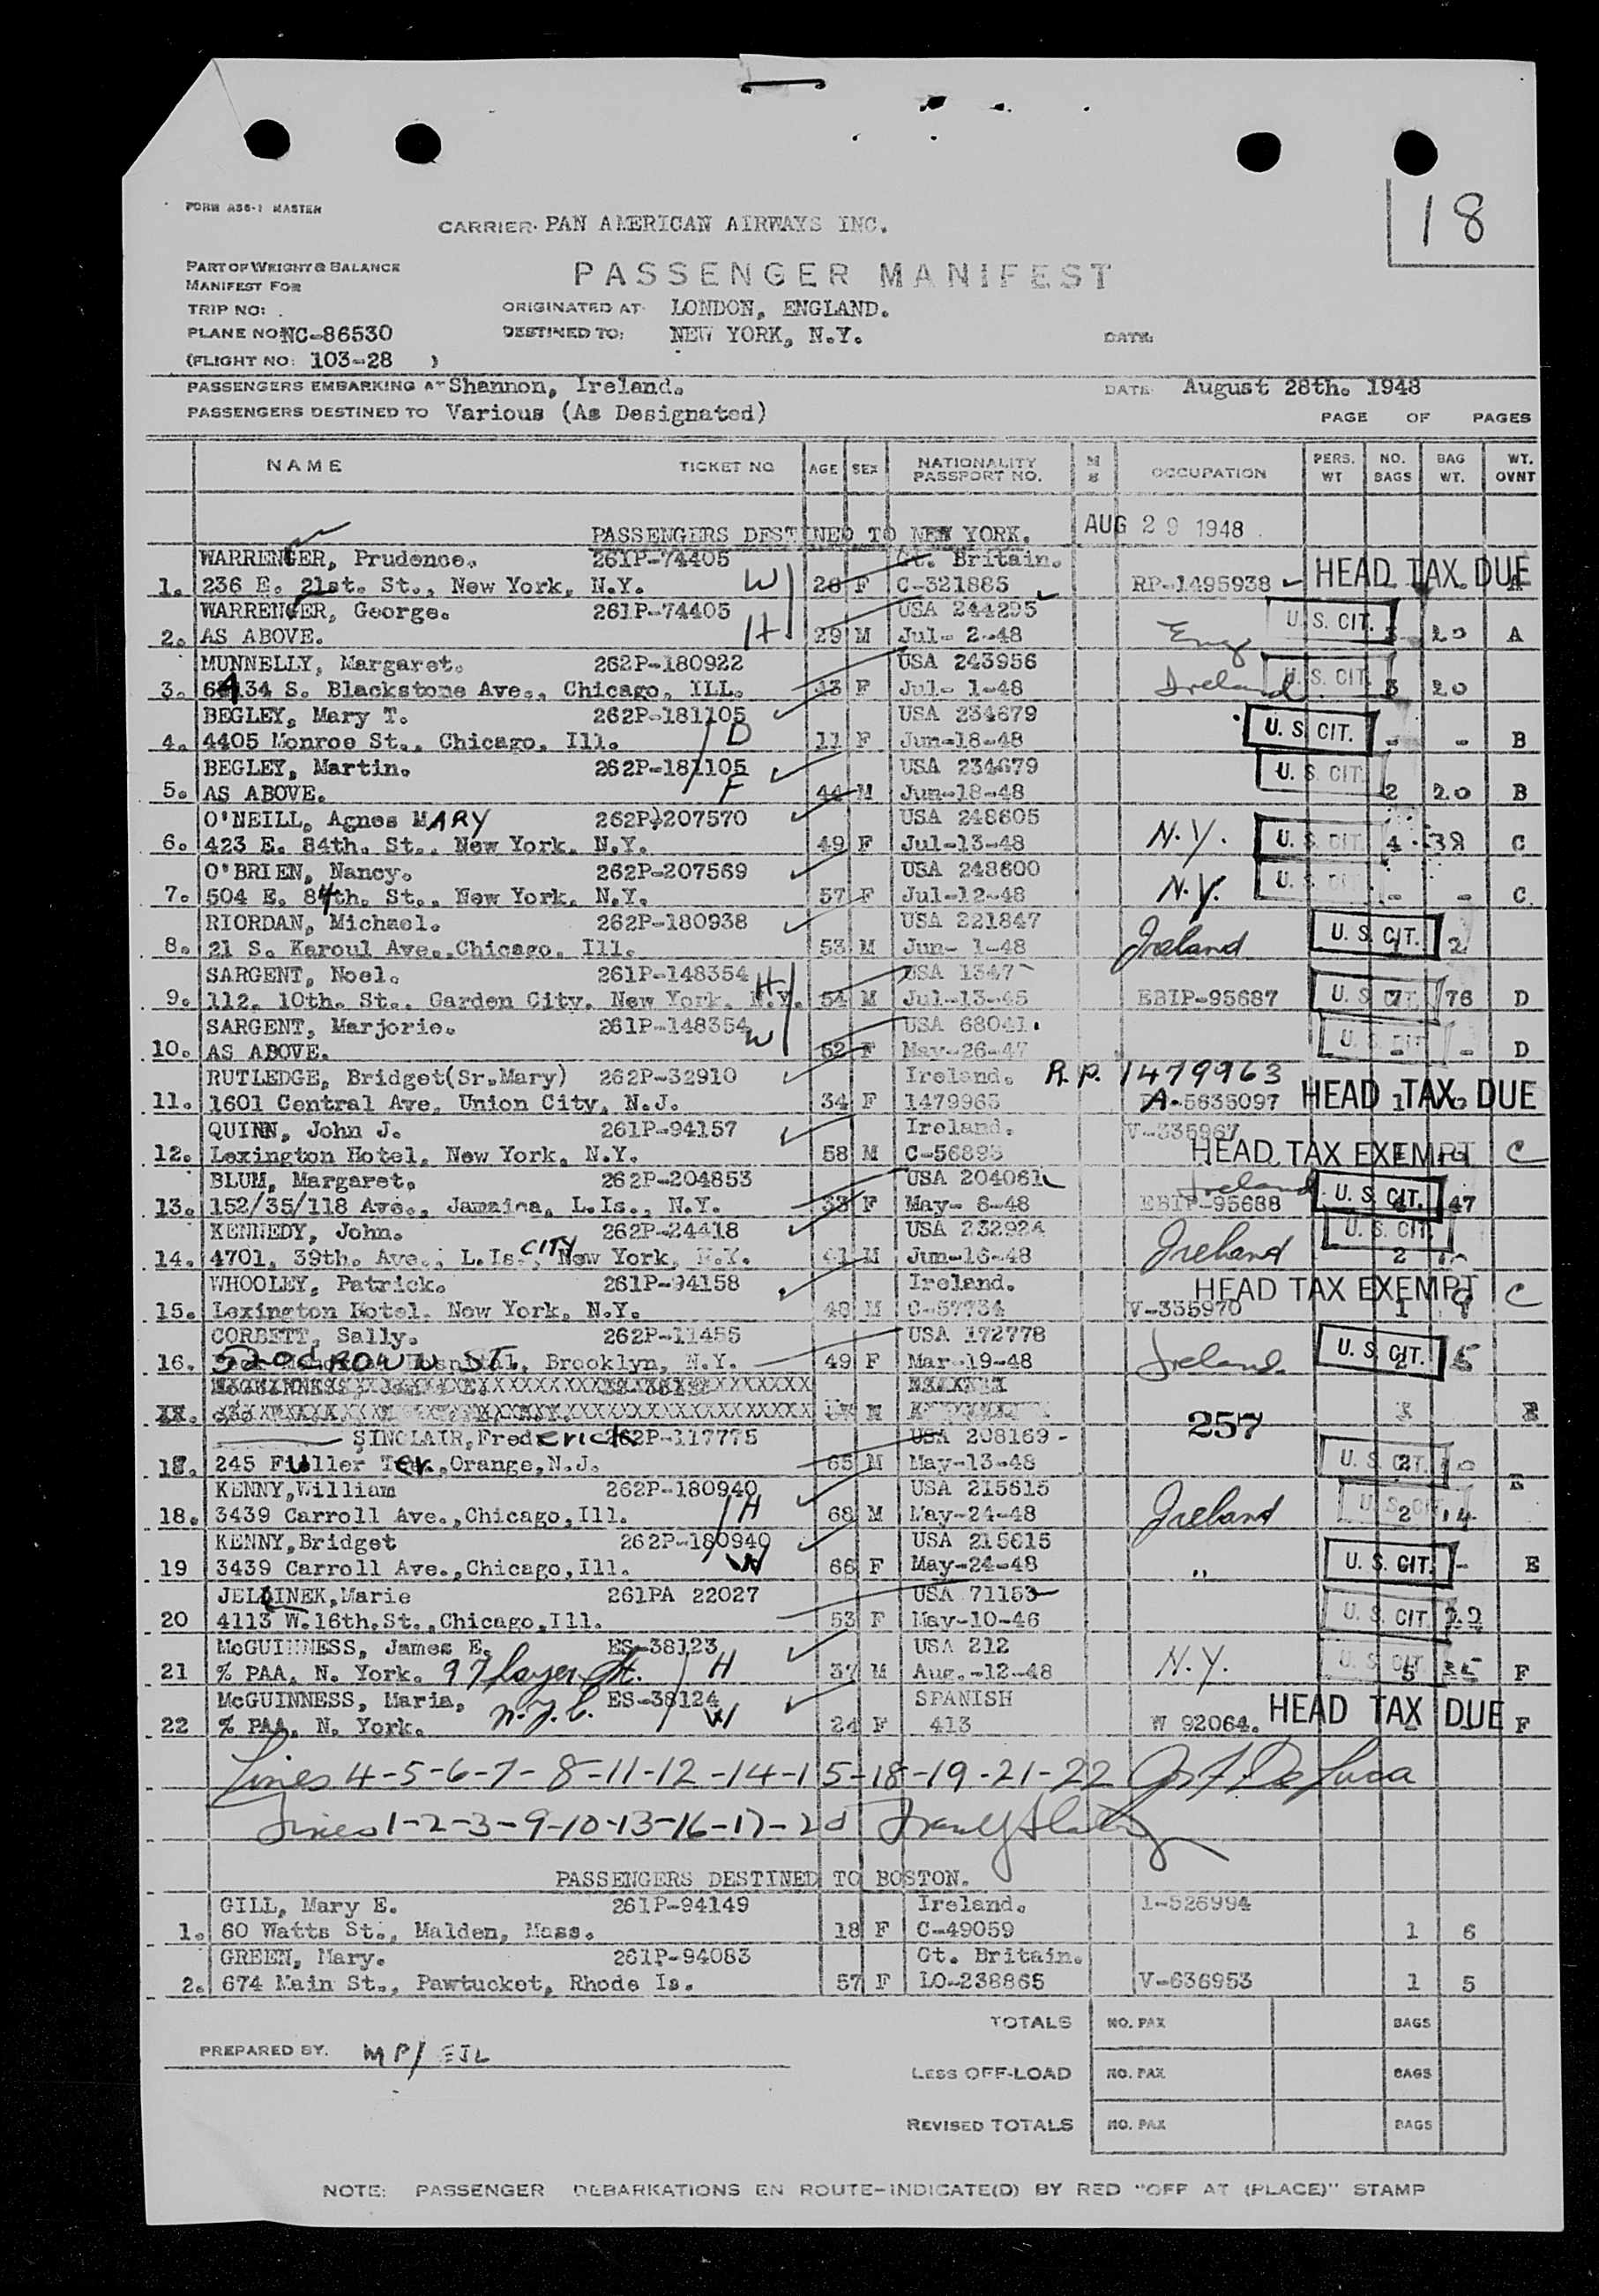 FORM AS6-1 MASTER
18
CARRIER: PAN AMERICAN AIRWAYS INC.
PART OF WEIGHT & BALANCE
PASSENGER MANIFEST
MANIFEST FOR
TRIP NO:
ORIGINATED AT LONDON, ENGLAND.
PLANE NO: NC-86530
DESTINED TO: NEW YORK, N.Y.
DATE:
(FLIGHT NO: 103-28 )
PASSENGERS EMBARKING AT Shannon, Ireland.
DATE August 28th. 1948
PASSENGERS DESTINED TO Various (As Designated)
PAGE OF PAGES
NAME TICKET NO AGE SEX NATIONALITY PASSPORT NO. OCCUPATION PERS. WT NO. BAGS BAG WT. WT. OVNT
PASSENGERS DESTINED TO NEW YORK. AUG 29 1948
WARRENGER, Prudence. 261P-74405 Gt. Britain.
1. 236 E. 21st. St., New York, N.Y. W 28 F C-321885 RP-1495938 HEAD TAX DUE A
WARRENGER, George. 261P-74405 USA 244295 U.S. CIT.
2. AS ABOVE. H 29 M Jul- 2-48 Eng 20 A
MUNNELLY, Margaret. 262P-180922 USA 243956 U.S. CIT.
3. 6134 S. Blackstone Ave., Chicago, ILL. 43 F Jul- 1-48 Ireland 3 20
BEGLEY, Mary T. 262P-181105 USA 234679 U.S. CIT.
4. 4405 Monroe St., Chicago, Ill. D 11 F Jun-18-48 - - B
BEGLEY, Martin. 262P-181105 USA 234679 U.S. CIT.
5. AS ABOVE. F 44 M Jun-18-48 2 20 B
O'NEILL, Agnes MARY 262P-207570 USA 248605
6. 423 E. 84th. St., New York, N.Y. 49 F Jul-13-48 N.Y. U.S. CIT. 4 38 C
O'BRIEN, Nancy. 262P-207569 USA 248600 U.
7. 504 E. 84th. St., New York, N.Y. 57 F Jul-12-48 N.Y. - - C
RIORDAN, Michael. 262P-180938 USA 221847 U.S. CIT.
8. 21 S. Karoul Ave., Chicago, Ill. 53 M Jun- 1-48 Ireland 2
SARGENT, Noel. 261P-148354 H USA 1347
9. 112. 10th. St., Garden City, New York, N.Y. 54 M Jul-13-45 EBIP-95687 U.S. CIT. 76 D
SARGENT, Marjorie. 261P-148354 W USA 68041.
10. AS ABOVE. 52 F May-26-47 - D
RUTLEDGE, Bridget(Sr.Mary) 262P-32910 Ireland. R.P. 1479963
11. 1601 Central Ave, Union City, N.J. 34 F 1479963 A-5635097 HEAD TAX DUE
QUINN, John J. 261P-94157 Ireland. V-335967
12. Lexington Hotel, New York, N.Y. 58 M C-56893 HEAD TAX EXEMPT C
BLUM, Margaret. 262P-204853 USA 204061 Ireland U.S. CIT.
13. 152/35/118 Ave., Jamaica, L.Is., N.Y. 33 F May- 8-48 EBIP-95688 47
KENNEDY, John. 262P-24418 USA 232924 U.S. CIT.
14. 4701, 39th. Ave., L.Is. CITY New York, N.Y. 41 M Jun-16-48 Ireland 2
WHOOLEY, Patrick. 261P-94158 Ireland. HEAD TAX EXEMPT C
15. Lexington Hotel, New York, N.Y. 48 M C-57734 V-335970 1 9
CORBETT, Sally. 262P-11455 USA 172778 U.S. CIT.
16. ST., Brooklyn, N.Y. 49 F Mar-19-48 Ireland. 5
XX. 257
SINCLAIR, Frederick 262P-117775 USA 208169 -
17. 245 Fuller Ter., Orange, N.J. 65 M May-13-48 U.S. CIT.
KENNY, William 262P-180940 USA 215615 E
18. 3439 Carroll Ave., Chicago, Ill. H 68 M May-24-48 Ireland 2 14
KENNY, Bridget 262P-180940 USA 215615
19 3439 Carroll Ave., Chicago, Ill. W 66 F May-24-48 " U.S. CIT. - E
JELINEK, Marie 261PA 22027 USA 71153
20 4113 W. 16th. St., Chicago, Ill. 53 F May-10-46 U.S. CIT 22
McGUINNESS, James E. ES-38123 USA 212
21 % PAA. N. York. 97 Thayer St. H 37 M Aug.-12-48 N.Y. 5 35 F
McGUINNESS, Maria, N.Y.C. ES-38124 SPANISH
22 % PAA. N. York. W 24 F 413 W 92064. HEAD TAX DUE F
Lines 4-5-6-7-8-11-12-14-15-18-19-21-22 Jos F. DeLuca
Lines 1-2-3-9-10-13-16-17-20
PASSENGERS DESTINED TO BOSTON.
GILL, Mary E. 261P-94149 Ireland. I-526994
1. 60 Watts St., Malden, Mass. 18 F C-49059 1 6
GREEN, Mary. 261P-94083 Gt. Britain.
2. 674 Main St., Pawtucket, Rhode Is. 57 F LO-238865 V-636953 1 5
TOTALS NO. PAX BAGS
PREPARED BY. MP/EJL
LESS OFF-LOAD NO. PAX BAGS
REVISED TOTALS NO. PAX BAGS
NOTE: PASSENGER DEBARKATIONS EN ROUTE-INDICATE(D) BY RED "OFF AT (PLACE)" STAMP